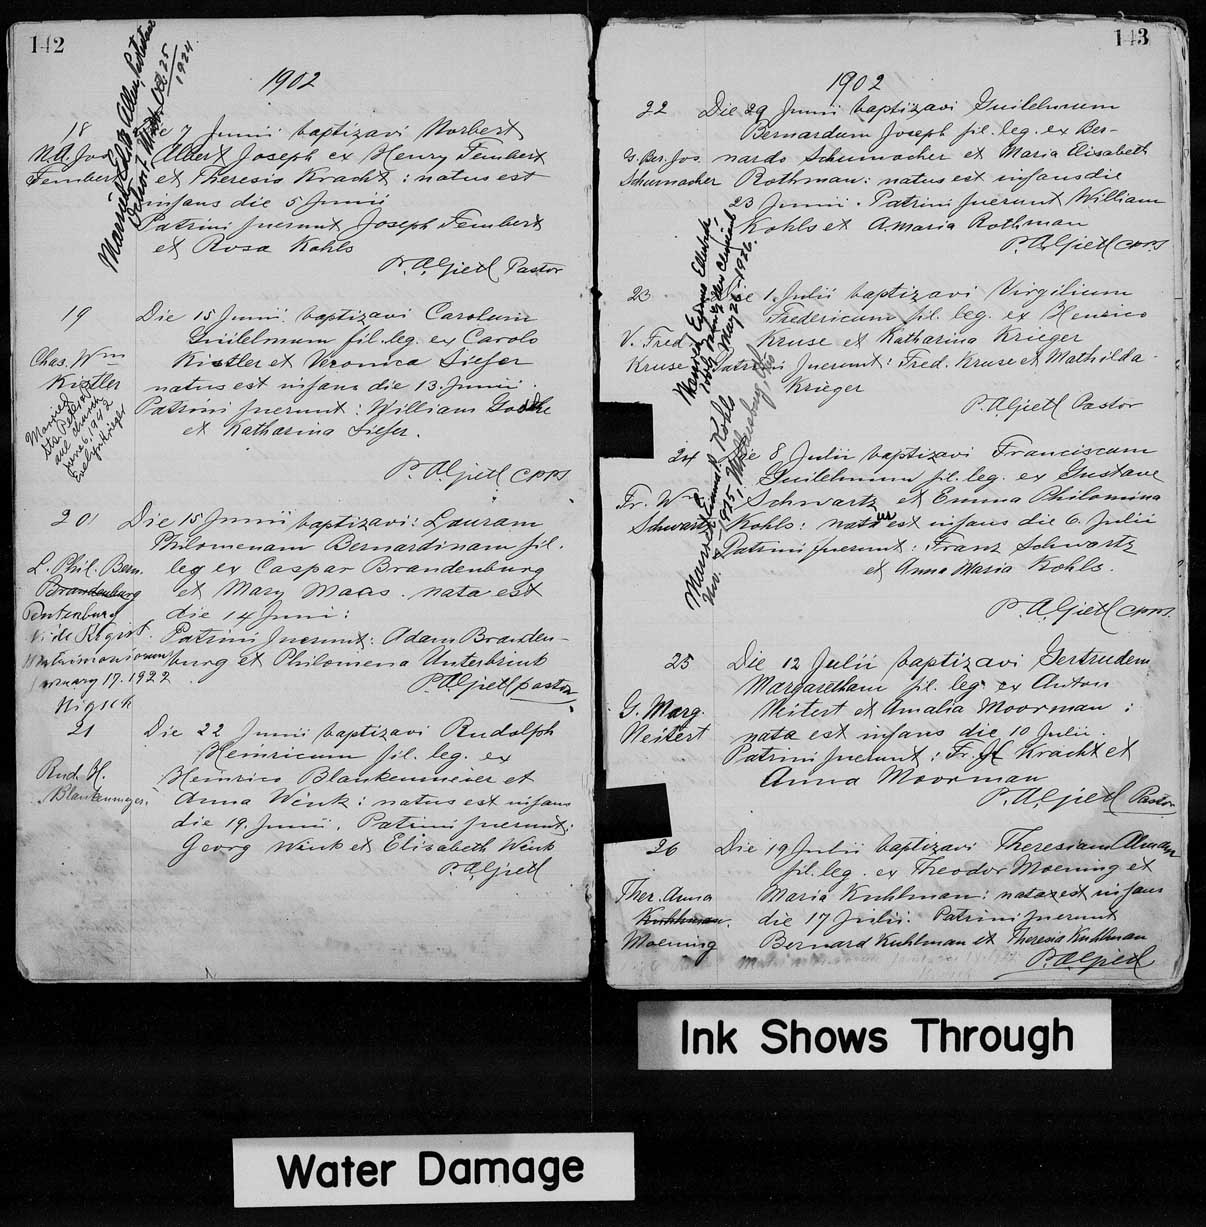 142
1902
Married Edith Allen
Detroit, Mich. Oct 25
1924
18
N. A. Jos
Fembert
Die 7 Junii baptizavi Norbert
Albert Joseph ex Henry Fembert
et Theresia Kracht : natus est
infans die 5 Junii
Patrini fuerunt Joseph Fembert
et Rosa Kohls
P. A. Gietl Pastor
19
Chas. Wm
Kistler
Married
Sts Peter
church
June 6, 1942
Evelyn Krieger
Die 15 Junii baptizavi Carolum
Guilelmum fil. leg. ex Carolo
Kistler et Veronica Siefer
natus est infans die 13. Junii
Patrini fuerunt : William Goedke
et Katharina Siefer.
P. A. Gietl C.PP.S
20
L. Phil. Bern.
Brandenburg
Matrimoniorum
January 17. 1922
Nigsch
Die 15 Junii baptizavi : Lauram
Philomenam Bernardinam fil.
leg ex Caspar Brandenburg
et Mary Maas. nata est
die 14 Juni :
Patrini fuerunt : Adam Branden-
burg et Philomena Unterbrink
P. A. Gietl pastor
21
Rud. H.
Blankemeyer.
Die 22 Junii baptizavi Rudolph
Heinricum fil. leg. ex
Heinrico Blankenmeier et
Anna Wink : natus est infans
die 19. Junii. Patrini fuerunt :
Georg Wink et Elisabeth Wink
P. A. Gietl
143
1902
22
G. Ber. Jos
Schumacher
Die 29 Junii baptizavi Guilelmum
Bernardum Joseph fil. leg. ex Ber-
nardo Schumacher et Maria Elisabeth
Rothman : natus est infans die
23 Junii. Patrini fuerunt William
Kohls et A Maria Rothman
P. A. Gietl C.PP.S
23
V. Fred
Kruse
Married
May 26 - 1926.
Die 1. Julii baptizavi Virgilium
Fredericum fil. leg. ex Henrico
Kruse et Katharina Krieger
Patrini fuerunt : Fred. Kruse et Mathilda
Krieger
P. A. Gietl Pastor
24
Fr. Wm
Schwartz
Married Emma R. Kohls
Nov. 1925,
Die 8 Julii baptizavi Franciscum
Guilelmum fil. leg. ex Gustave
Schwartz et Emma Philomina
Kohls : natus est infans die 6. Julii
Patrini fuerunt : Franz Schwartz
et Anna Maria Kohls.
P. A. Gietl C.PP.S.
25
G. Marg.
Weitert
Die 12 Julii baptizavi Gertrudem
Margaretham fil. leg. ex Anton
Weitert et Amalia Moorman :
nata est infans die 10 Julii.
Patrini fuerunt : Fr. Kracht et
Anna Moorman
P. A. Gietl Pastor
26
Ther. Anna
Kuhlman.
Moening
Die 19 Julii baptizavi Theresiam Annam
fil. leg. ex Theodor Moening et
Maria Kuhlman : nata est infans
die 17 Julii. Patrini fuerunt
Bernard Kuhlman et Theresia Kuhlman
P. A. Gietl
Ink Shows Through
Water Damage